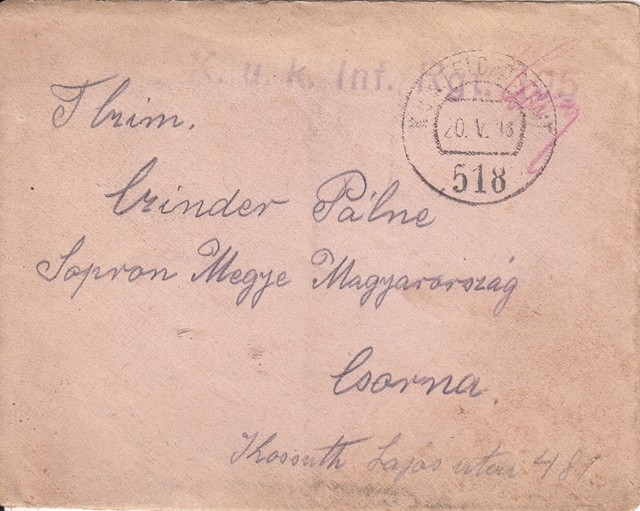 K. u. k. Inf. Rgt.
20. V. 18
518
Tkzim.
Czinder Pálne
Sopron Megye Magyarország
Csorna.
Kossuth Lajos utca 481